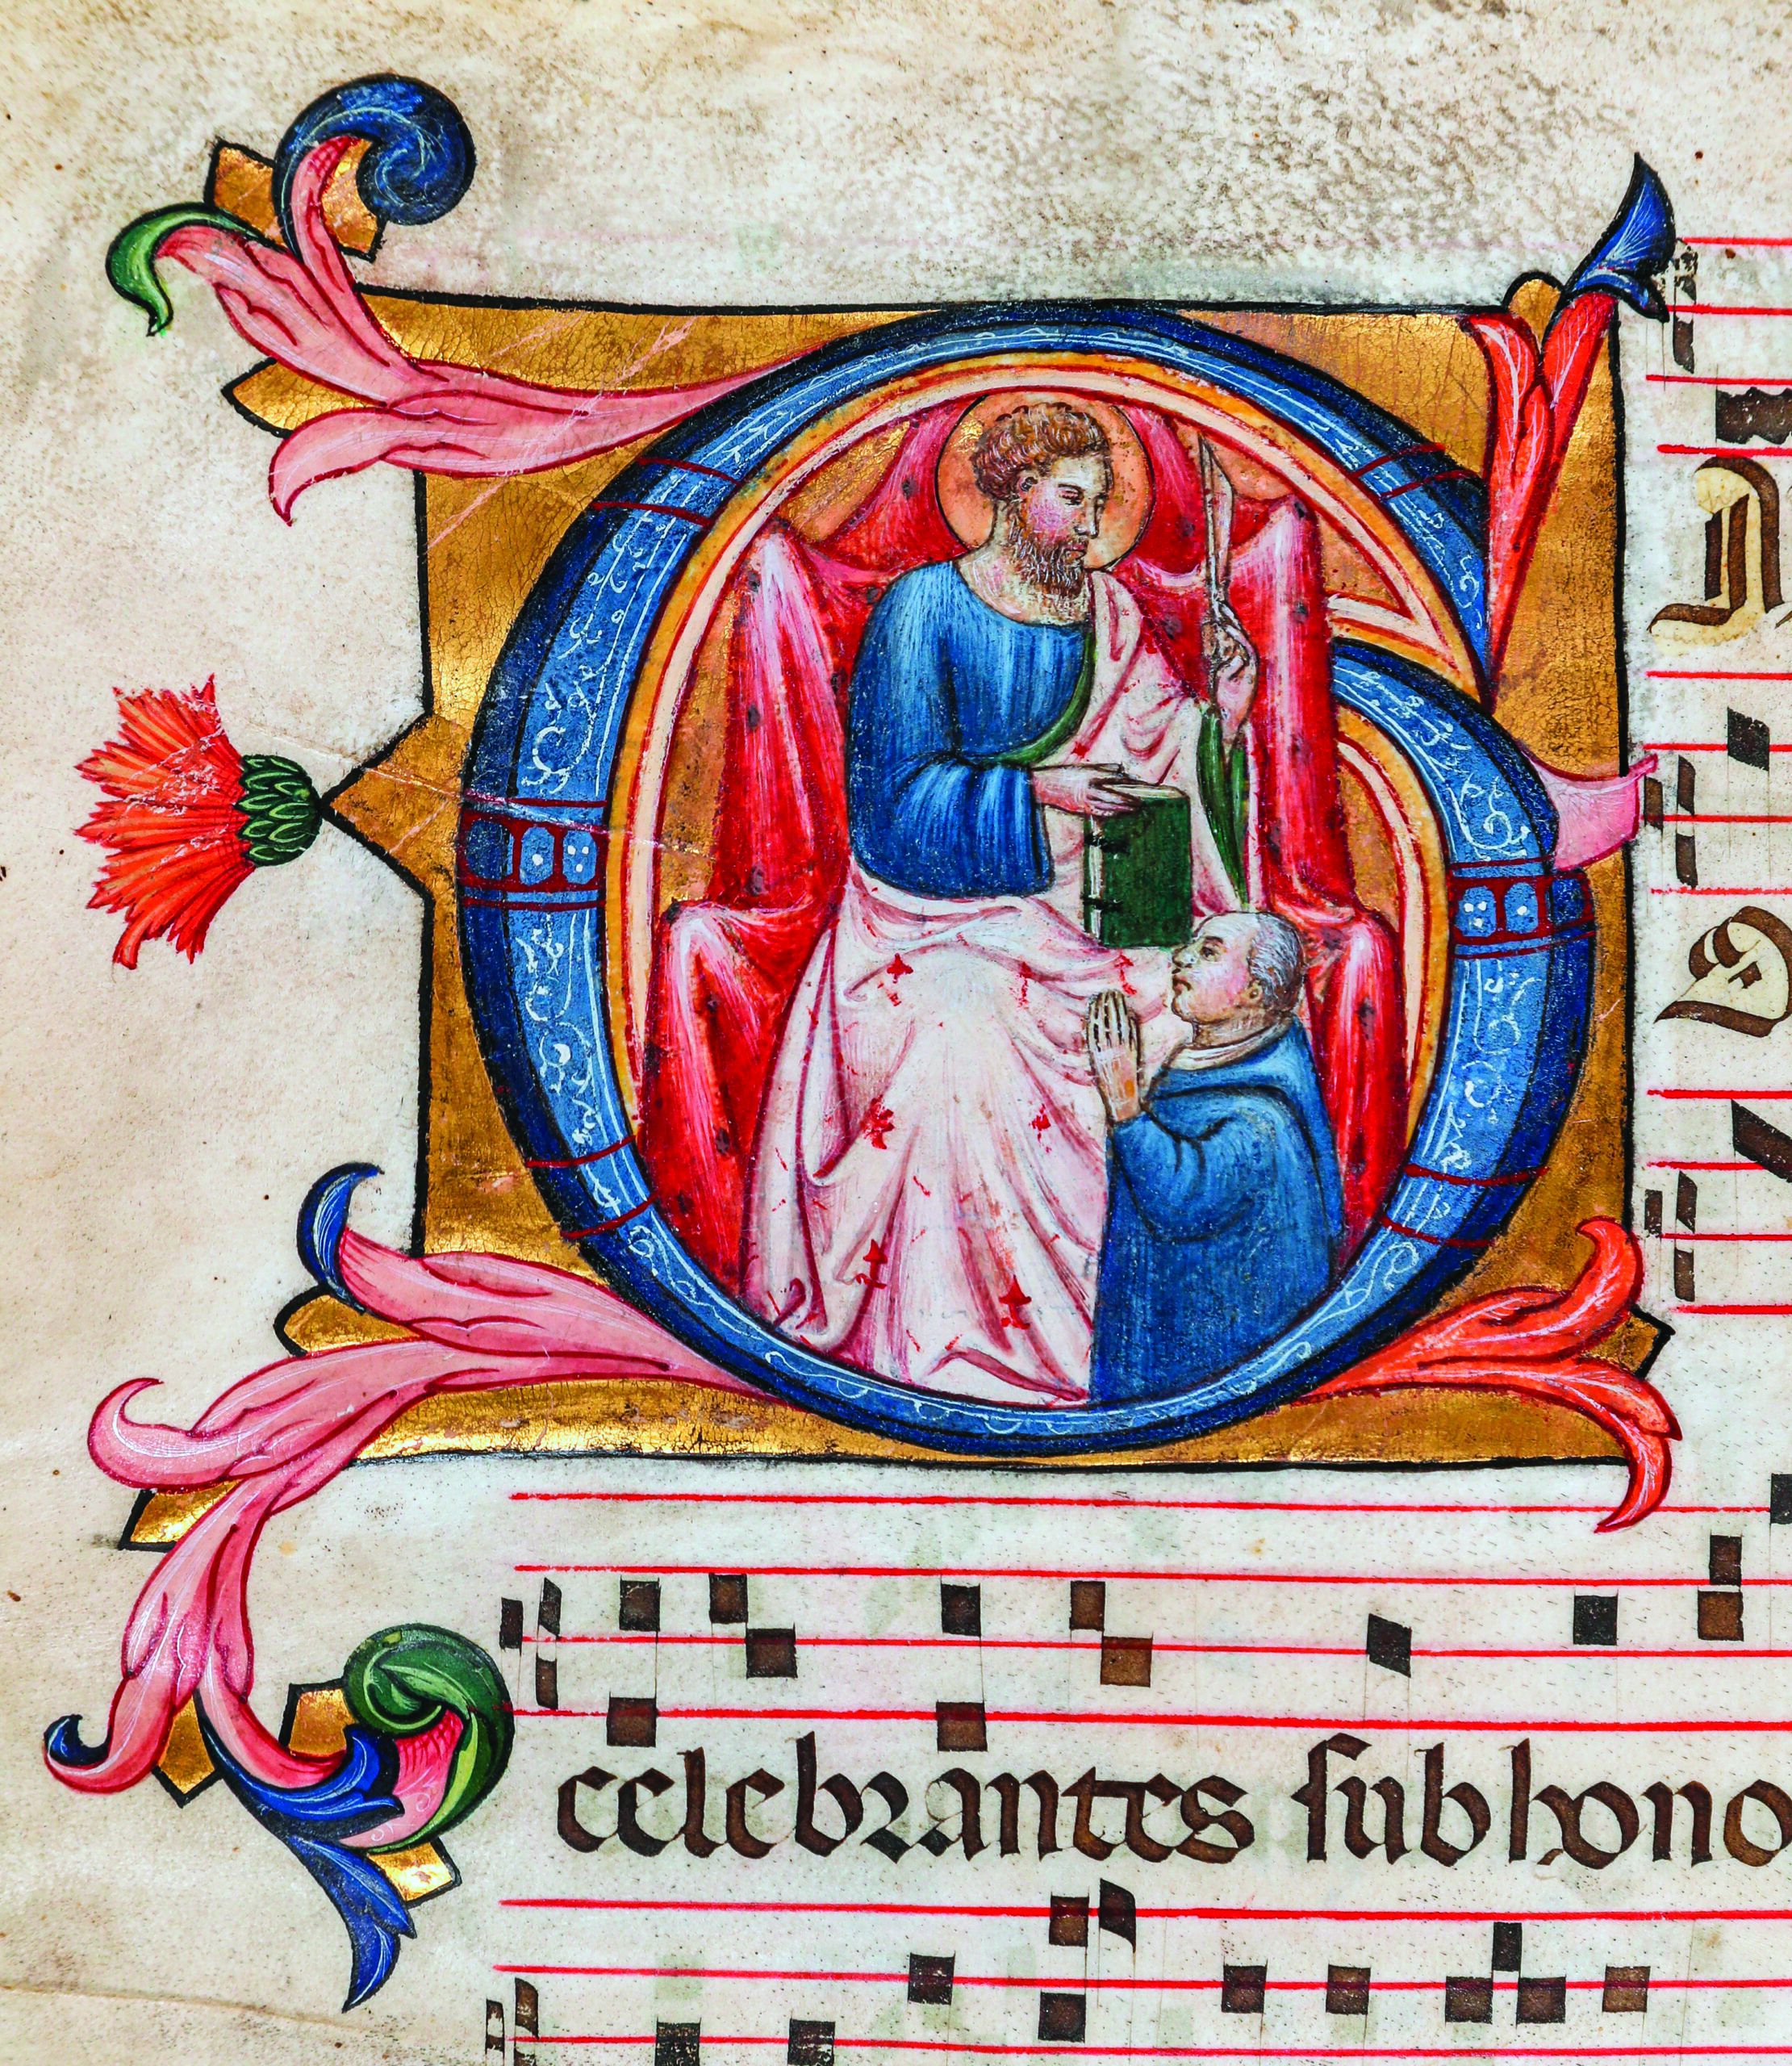 G
celebrantes ſub hono